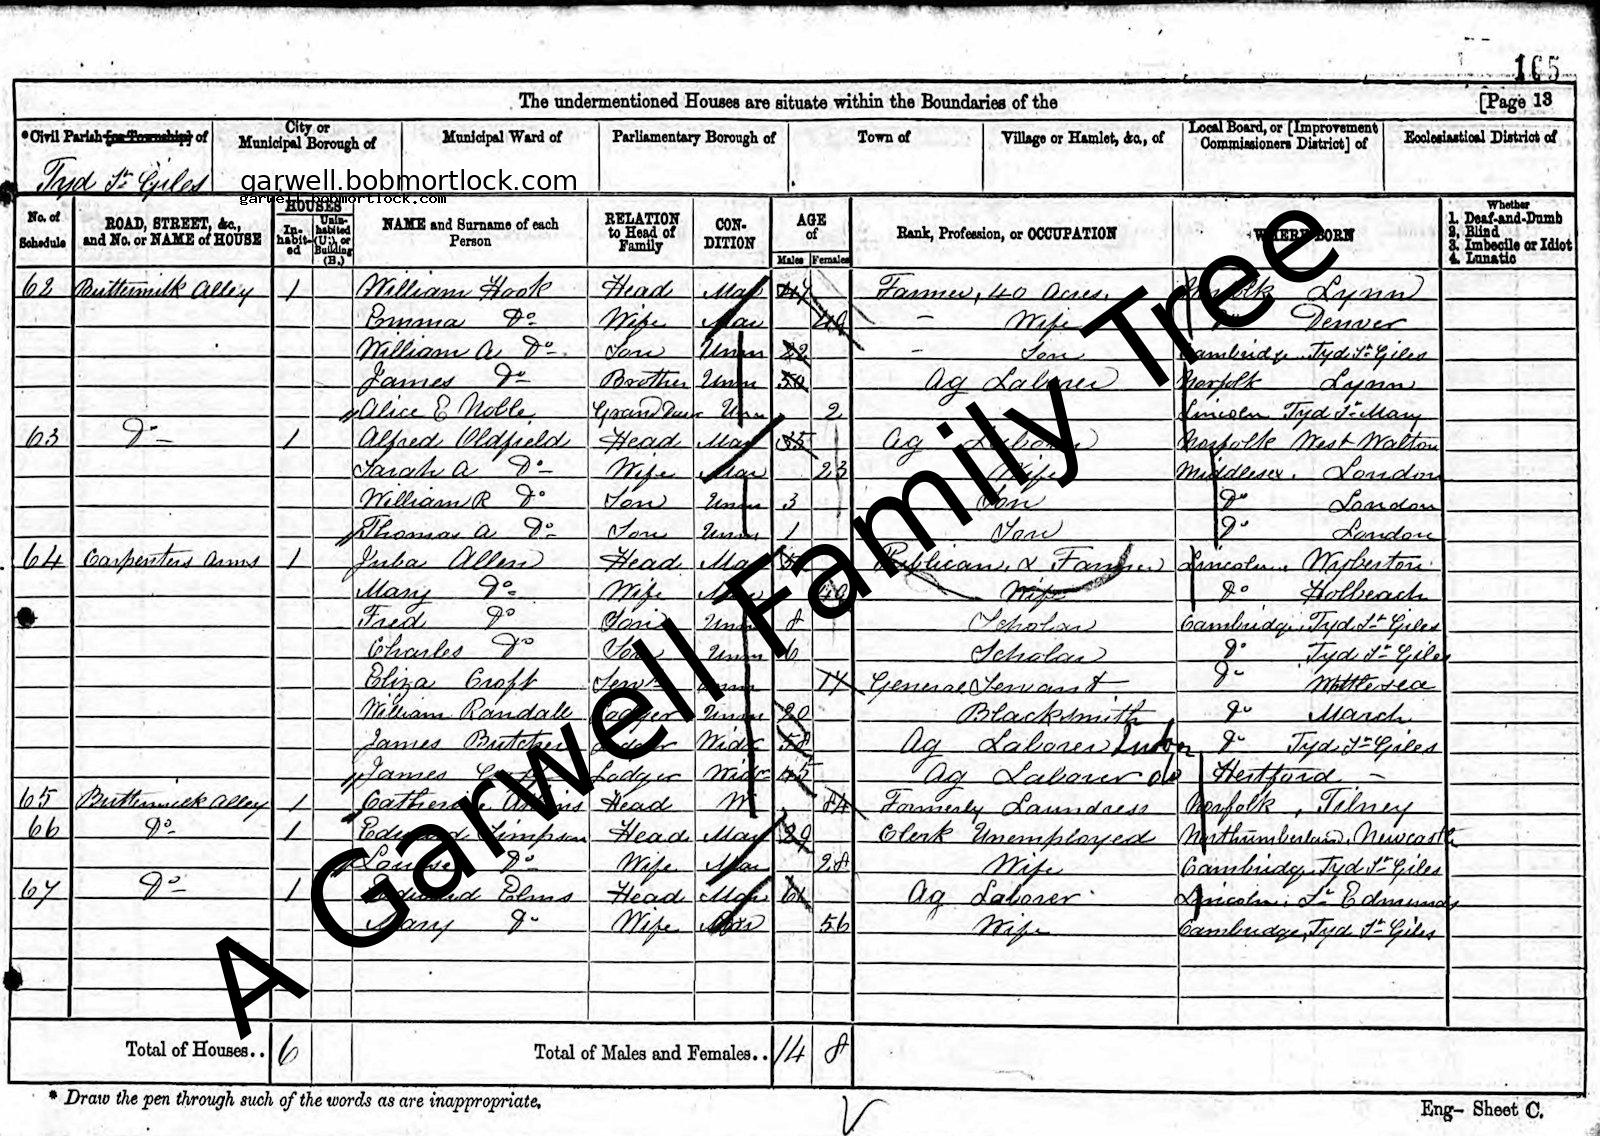 165
The undermentioned Houses are situate within the Boundaries of the [Page 13
*Civil Parish [or Township] of City or Municipal Borough of Municipal Ward of Parliamentary Borough of Town of Village or Hamlet, &c., of Local Board, or [Improvement Commissioners District] of Ecclesiastical District of
Tyd St Giles
garwell.bobmortlock.com
garwell.bobmortlock.com
No. of Schedule ROAD, STREET, &c., and No. or NAME of HOUSE HOUSES In-habit-ed Unin-habited (U.), or Building (B.) NAME and Surname of each Person RELATION to Head of Family CON-DITION AGE of Males Females Rank, Profession, or OCCUPATION WHERE BORN Whether 1. Deaf-and-Dumb 2. Blind 3. Imbecile or Idiot 4. Lunatic
62 Buttermilk Alley 1 William Hook Head Mar Farmer, 40 Acres, Norfolk Lynn
Emma Do Wife Mar Wife Do Denver
William A Do Son Unm 22 Son Cambridge Tyd St Giles
James Do Brother Unm Ag Laborer Norfolk Lynn
Alice E Noble Unm 2 Lincoln Tyd St Mary
63 Do 1 Alfred Oldfield Head Mar 35 Ag Laborer Norfolk West Walton
Sarah A Do Wife Mar 23 Wife Middlesex. London
William R Do Son Unm 3 Son Do London
Thomas A Do Son Unm 1 Son Do London
64 Carpenters Arms 1 Juba Allen Head Mar Publican & Farmer Lincoln. Wyberton
Mary Do Wife Mar Wife Do Holbeach
Fred Do Son Unm 8 Scholar Cambridge, Tyd St Giles
Charles Do Son Unm 6 Scholar Do Tyd St Giles
Eliza Croft Servt Unm 14 General Servant Do Whittlesea
William Randall Lodger Unm 20 Blacksmith Do March
James Butcher Lodger Widr 58 Ag Laborer Do Tyd St Giles
James Lodger Widr 45 Ag Laborer Hertford
65 Buttermilk Alley 1 Catherine Head W 84 Formerly Laundress Norfolk, Tilney
66 Do 1 Edward Simpson Head Mar 29 Clerk Unemployed Northumberland, Newcastle
Louise Do Wife Mar 28 Wife Cambridge, Tyd St Giles
67 Do 1 Edward Elms Head Mar 61 Ag Laborer Lincoln. St Edmunds
Mary Do Wife Mar 56 Wife Cambridge, Tyd St Giles
A Garwell Family Tree
Total of Houses.. 6 Total of Males and Females.. 14 8
* Draw the pen through such of the words as are inappropriate.
Eng- Sheet C.